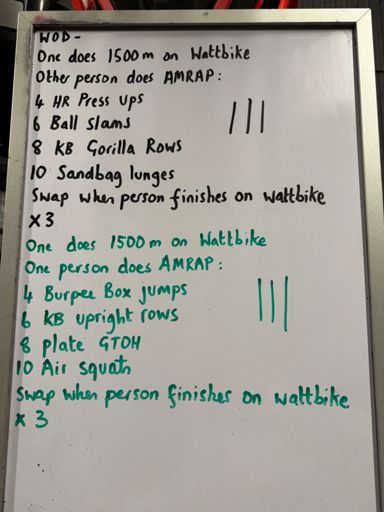 WOD -
One does 1500m on Wattbike
Other person does AMRAP:
4 HR Press ups
6 Ball Slams
8 KB Gorilla Rows
10 Sandbag lunges
Swap when person finishes on wattbike
x3
One does 1500m on Wattbike
One person does AMRAP:
4 Burpee Box jumps
6 KB upright rows
8 plate GTOH
10 Air squats
Swap when person finishes on wattbike
x 3